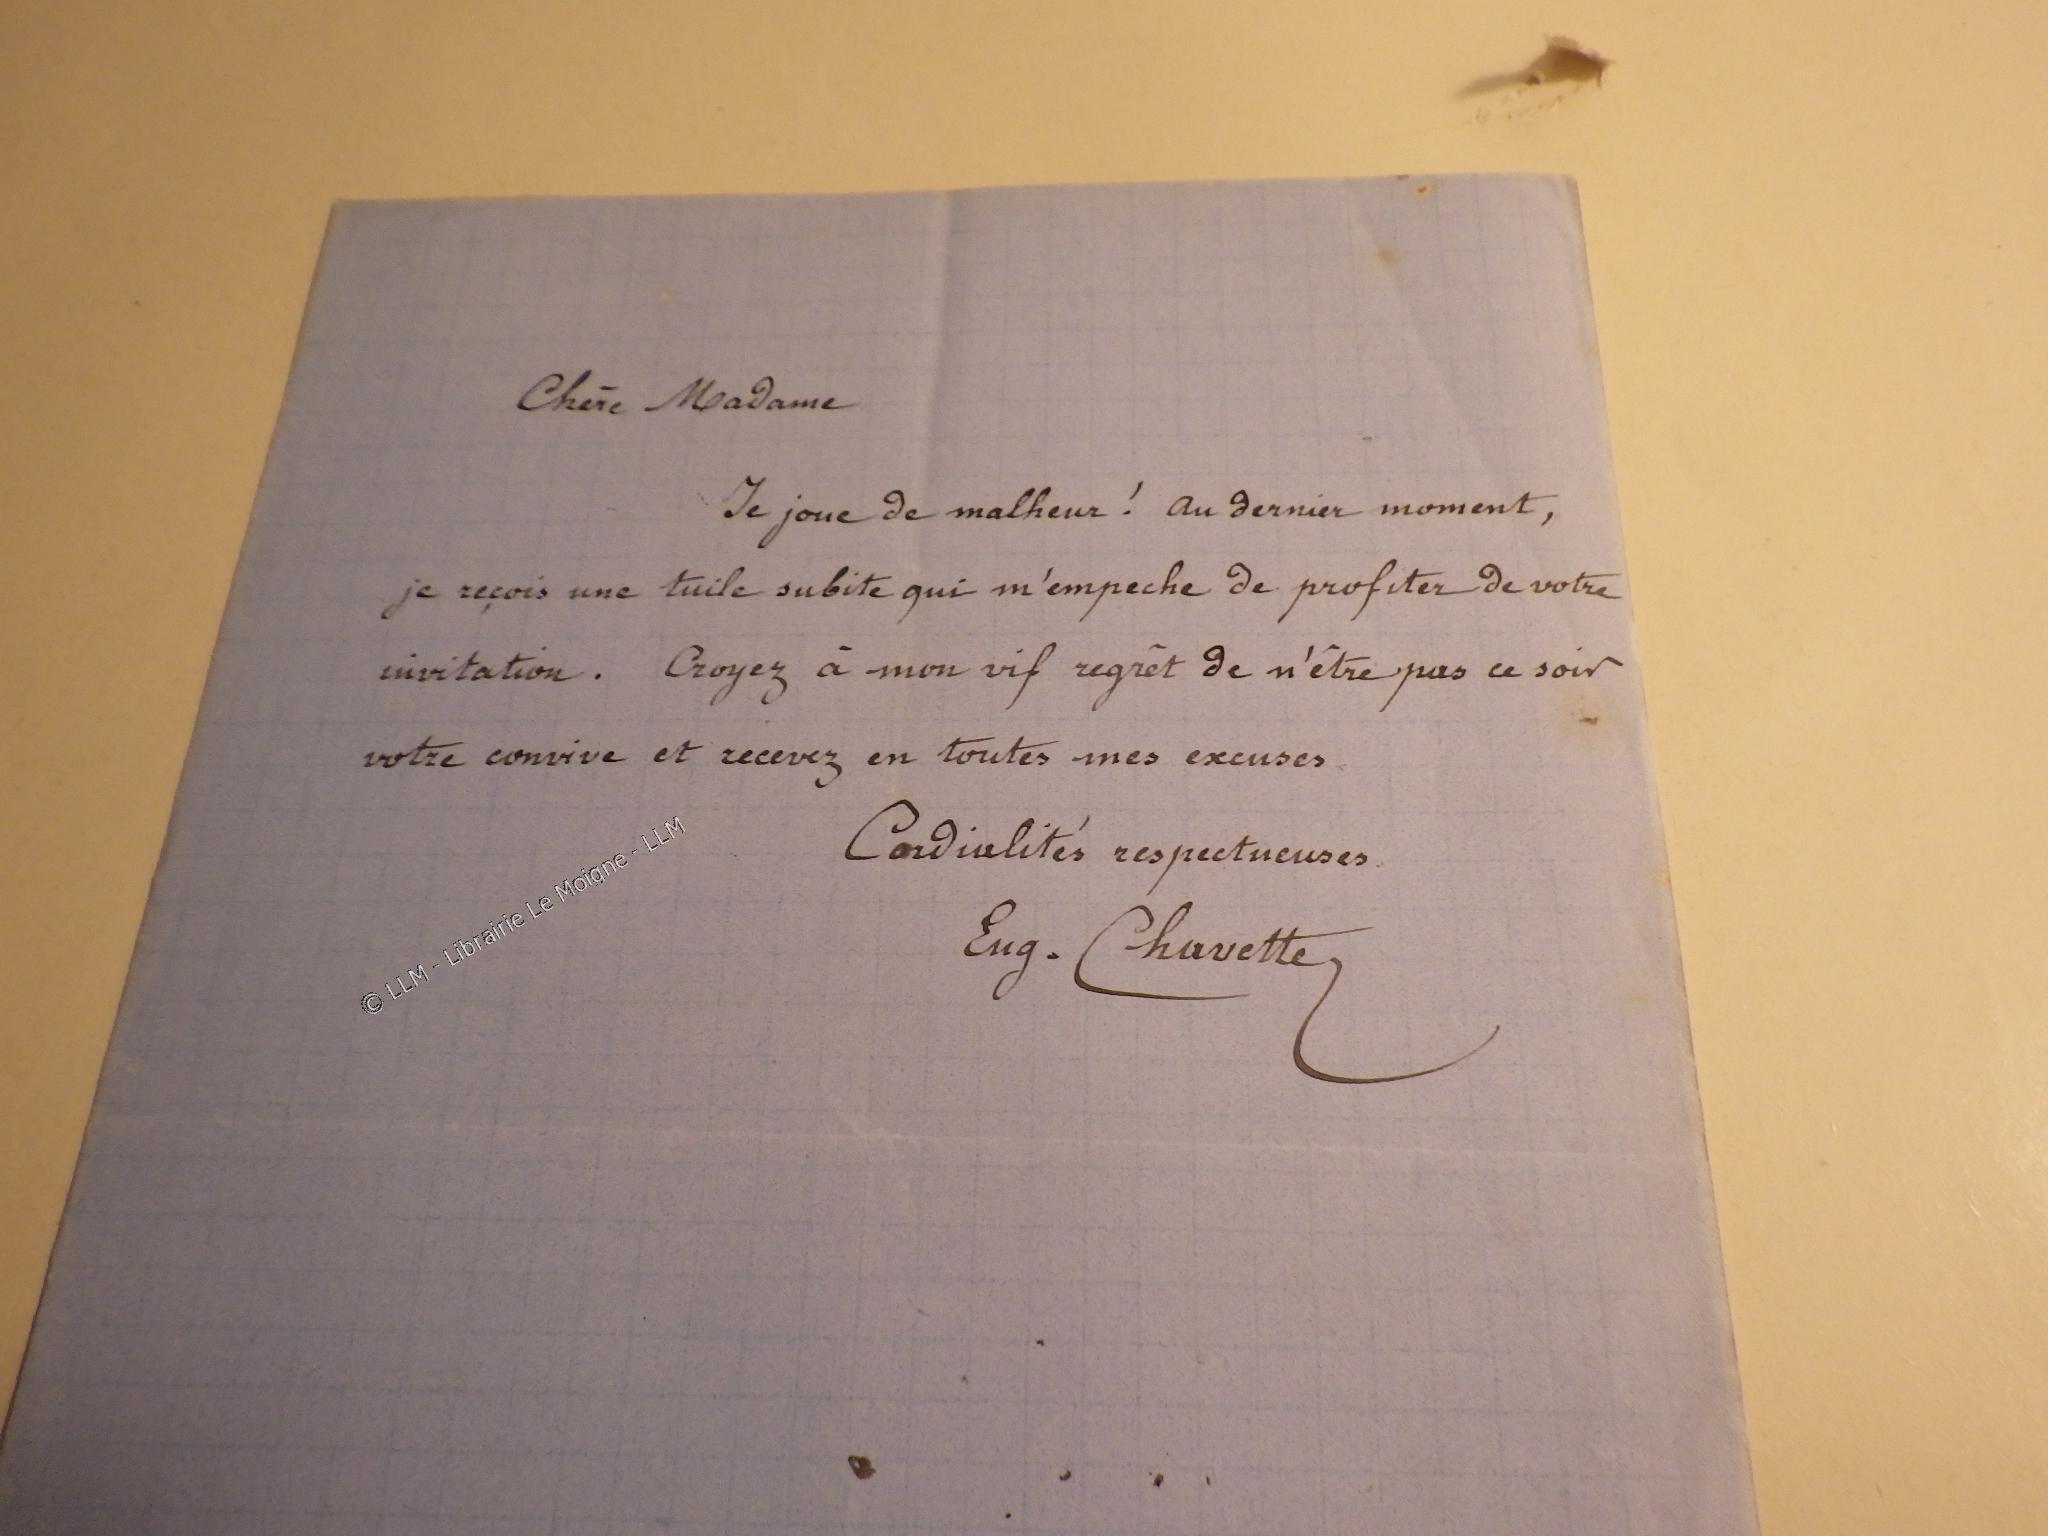 Chère Madame
Je joue de malheur ! au dernier moment,
je reçois une tuile subite qui m'empeche de profiter de votre
invitation. Croyez à mon vif regrêt de n'être pas ce soir
votre convive et recevez en toutes mes excuses.
Cordialités respectueuses.
Eug. Chavette
© LLM - Librairie Le Moigne - LLM